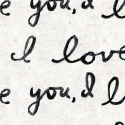 e you, I l
I love
e you, I l